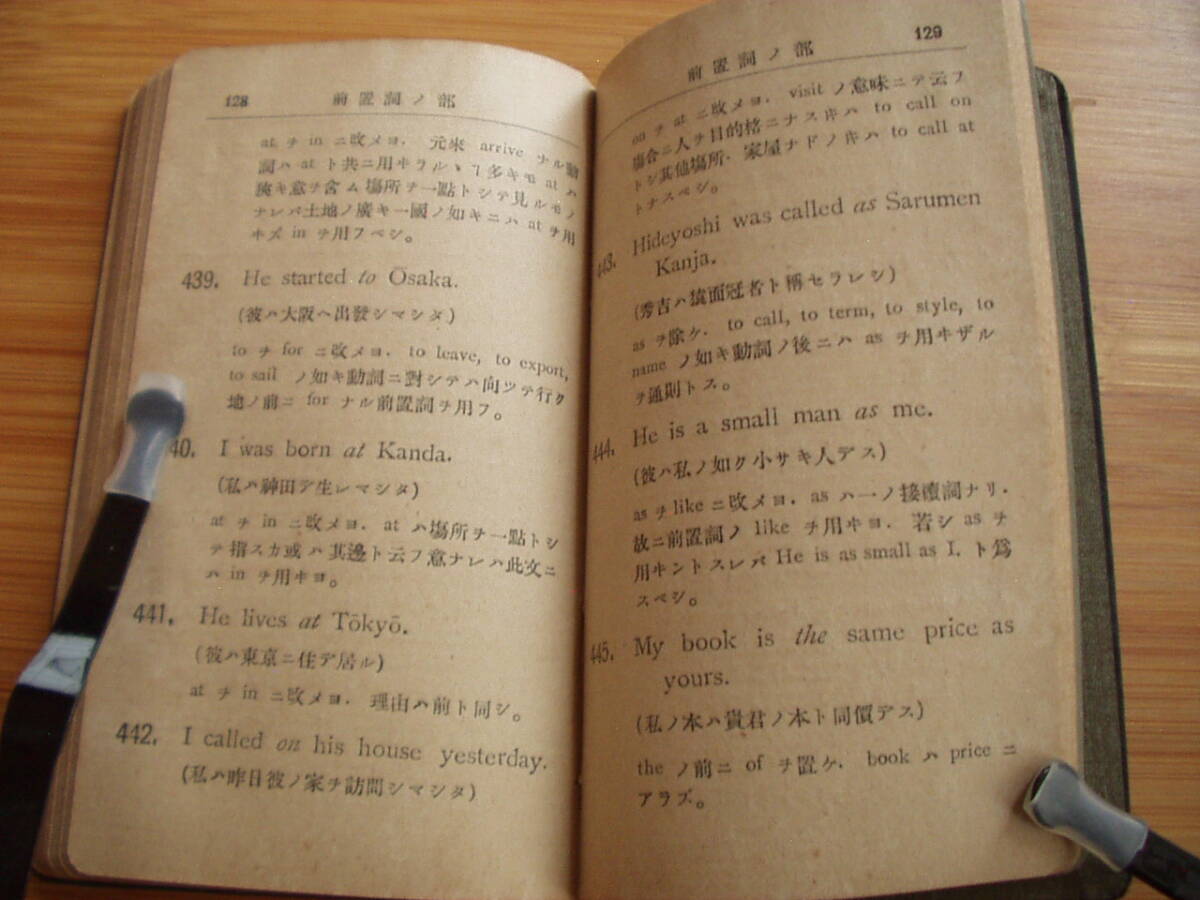 128 前置詞ノ部
at ヲ in ニ改メヨ. 元來 arrive ナル動
詞ハ at ト共ニ用ヰラルヽヿ多キモ at ハ
狹キ意ヲ含ム塲所ヲ一點トシテ見ルモノ
ナレバ土地ノ廣キ一國ノ如キニハ at ヲ用
ヰズ in ヲ用フベシ。
439. He started to Ōsaka.
(彼ハ大阪ヘ出發シマシタ)
to ヲ for ニ改メヨ. to leave, to export,
to sail ノ如キ動詞ニ對シテハ向ツテ行ク
地ノ前ニ for ナル前置詞ヲ用フ。
40. I was born at Kanda.
(私ハ神田デ生レマシタ)
at ヲ in ニ改メヨ. at ハ塲所ヲ一點トシ
テ指スカ或ハ其邊ト云フ意ナレハ此文ニ
ハ in ヲ用ヰヨ。
441. He lives at Tōkyō.
(彼ハ東京ニ住デ居ル)
at ヲ in ニ改メヨ. 理由ハ前ト同シ。
442. I called on his house yesterday.
(私ハ昨日彼ノ家ヲ訪問シマシタ)
前置詞ノ部 129
on ヲ at ニ改メヨ. visit ノ意味ニテ云フ
塲合ニ人ヲ目的格ニナスヰハ to call on
トシ其他塲所. 家屋ナドノヰハ to call at
トナスベシ。
443. Hideyoshi was called as Sarumen
Kanja.
(秀吉ハ猿面冠者ト稱セラレシ)
as ヲ除ケ. to call, to term, to style, to
name ノ如キ動詞ノ後ニハ as ヲ用ヰザル
ヲ通則トス。
444. He is a small man as me.
(彼ハ私ノ如ク小サキ人デス)
as ヲ like ニ改メヨ. as ハ一ノ接續詞ナリ.
故ニ前置詞ノ like ヲ用ヰヨ. 若シ as ヲ
用ヰントスレバ He is as small as I. ト爲
スベシ。
445. My book is the same price as
yours.
(私ノ本ハ貴君ノ本ト同價デス)
the ノ前ニ of ヲ置ケ. book ハ price ニ
アラズ。